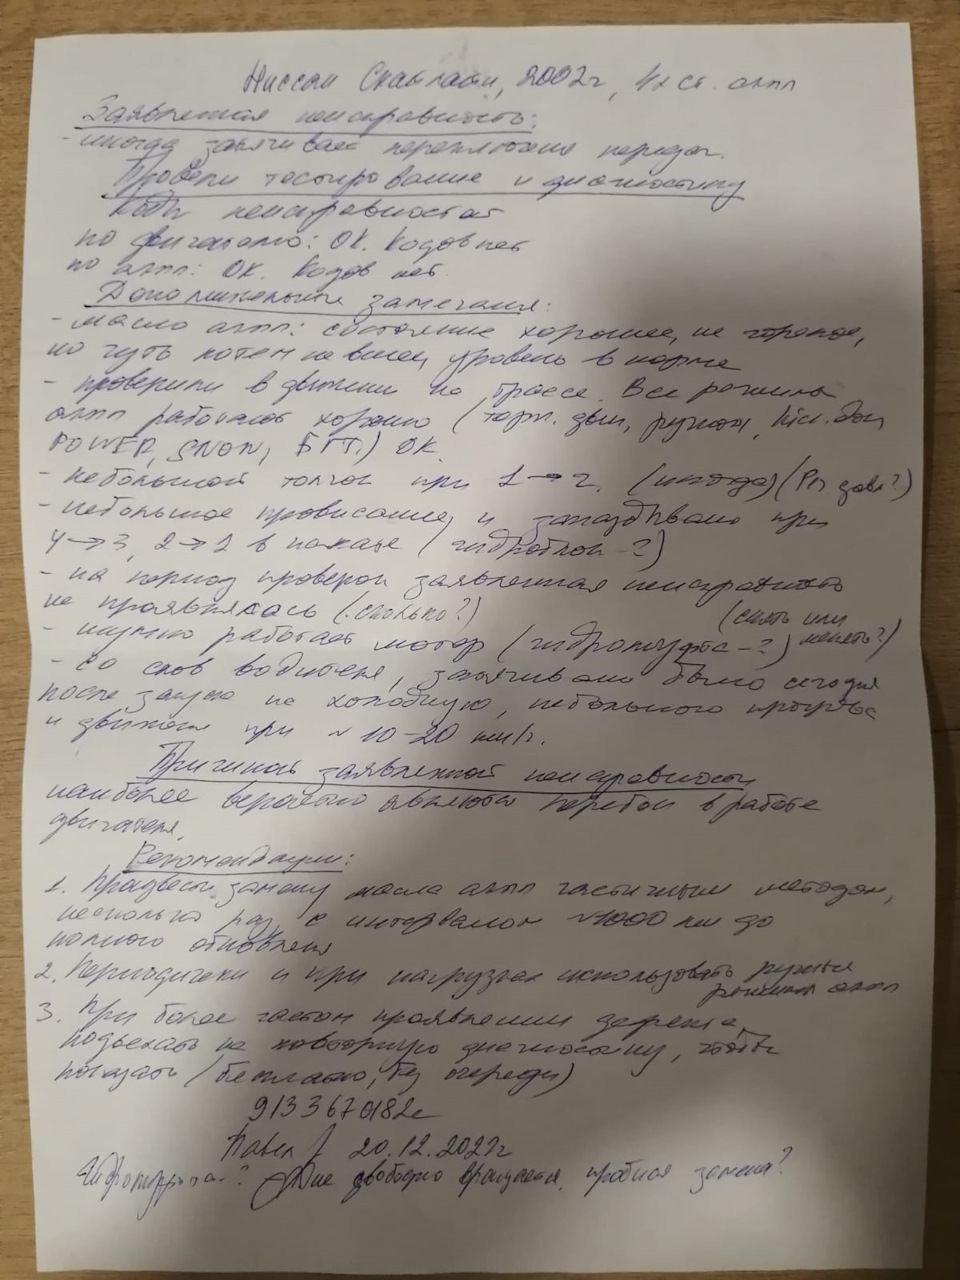 Ниссан Скайлайн, 2002г, 4х ст. акпп
Заявленная неисправность:
- иногда затягивает переключения передач.
Провели тестирование и диагностику
Коды неисправностей
по двигателю: ОК. Кодов нет
по акпп: ОК. Кодов нет.
Дополнительные замечания:
- масло акпп: состояние хорошее, не горелое,
но чуть потемневшее, уровень в норме
- проверили в движении на трассе. Все режимы
акпп работают хорошо (торм. двиг, ручной, кик-даун
POWER, SNOW, ) ОК.
- небольшой толчок при 1→2. (иногда) (давл?)
- небольшое провисание и запаздывание при
4→3, 2→1 в накате (гидроблок-?)
- на период проверок заявленная неисправность
не проявлялась (сколько?)
(снять или менять?)
- шумно работает мотор (гидромуфта-?)
- со слов водителя, затягивание было сегодня
после запуска на холодную, небольшого прогрева
и движении при ~10-20 км/ч.
Причиной заявленной неисправности
наиболее вероятно являются перебои в работе
двигателя.
Рекомендации:
1. Произвести замену масла акпп частичным методом,
несколько раз с интервалом ~1000 км до
полного обновления
2. Периодически и при нагрузках использовать ручные
режимы акпп
3. При более частом проявлении дефекта
подъехать на повторную диагностику, чтобы
показать (бесплатно, без очереди)
Павел 20.12.202
Гидромуфта? свободно вращается, пробная замена?